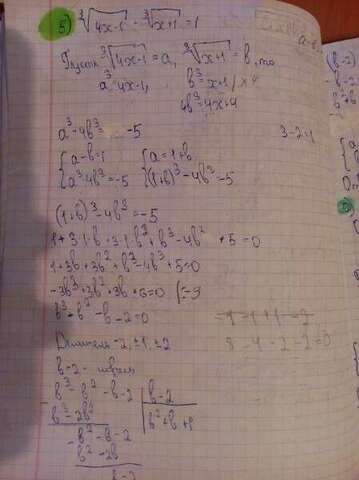 5) ∛4x-1 - ∛x+1 = 1
Пусть ∛4x-1 = a, ∛x+1 = b, то
a³ = 4x-1, b³ = x+1 | ×4
4b³ = 4x+4
a³ - 4b³ = -5
3-2=1
{a-b=1 {a=1+b
{a³-4b³=-5 {(1+b)³-4b³=-5
(1+b)³-4b³=-5
1+3·1·b+3·1·b²+b³-4b³+5=0
1+3b+3b²+b³-4b³+5=0
-3b³+3b²+3b+6=0 |:-3
b³-b²-b-2=0
Делители -2, ±1, ±2
8-4-2-2=0
b=2 -
b³-b²-b-2 | b-2
b³-2b² b²+b+1
b²-b-2
b²-2b
b-2